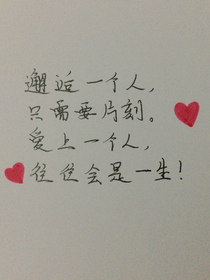 邂逅一个人，
只需要片刻。
爱上一个人，
往往会是一生！